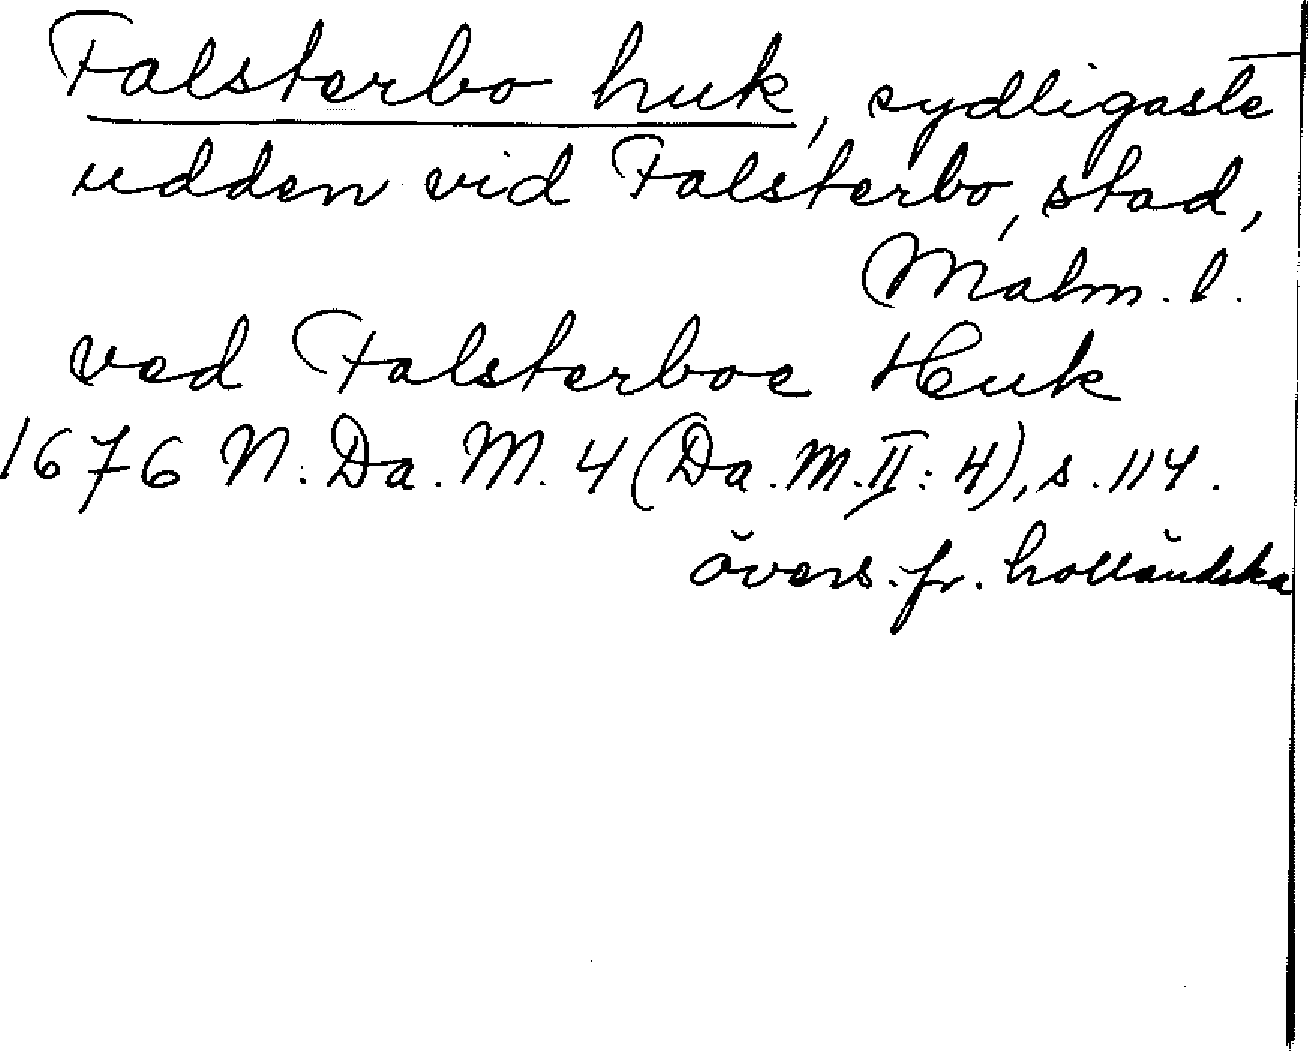 Falsterbo huk, sydligaste
udden vid Falsterbo, stad,
Malm. l.
ved Falsterboe Huk
1676 N. Da. M. 4 (Da. M. II: 4), s. 114.
övers. fr. holländska